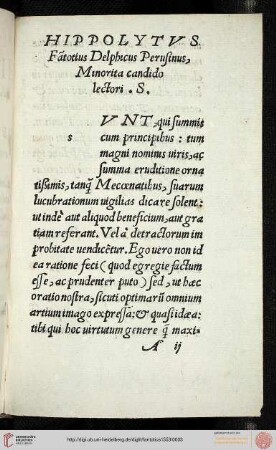 HIPPOLYTVS
Fãtotius Delphicus Perusinus,
Minorita candido
lectori .S.
s VNT, qui summis
cum principibus: tum
magni nominis uiris, ac
summa eruditione orna
tißimis, tanq̃ Mecœnatibus, suarum
lucubrationum uigilias dicare solent:
ut inde aut aliquod beneficium, aut gra
tiam referant. Vel a detractorum im
probitate uendicẽtur. Ego uero non id
ea ratione feci (quod egregie factum
esse, ac prudenter puto) sed, ut hæc
oratio nostra, sicuti optimarũ omnium
artium imago expressa: & quasi idæa:
tibi qui hoc uirtutum genere q̃ maxi-
A ij
http://digi.ub.uni-heidelberg.de/diglit/fantotius1559/0003